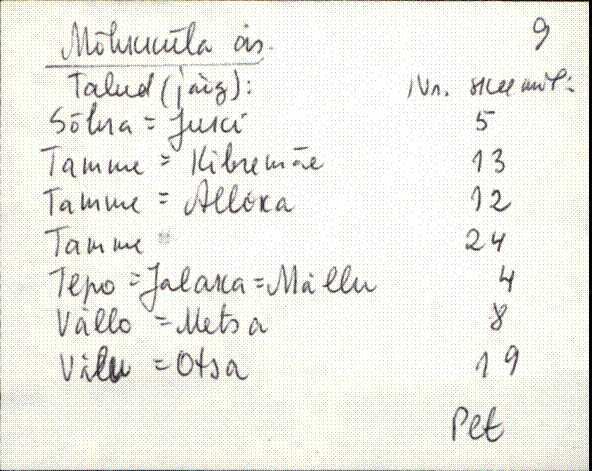 Mõhuküla as. 9
Talud (järg): Nr. skeemil:
Sõhra = Juski 5
Tamme = Kibremäe 13
Tamme = Allõka 12
Tamme 24
Tepo = Jalaka = Mällu 4
Vällo = Metsa 8
Välu = Otsa 19
Pet